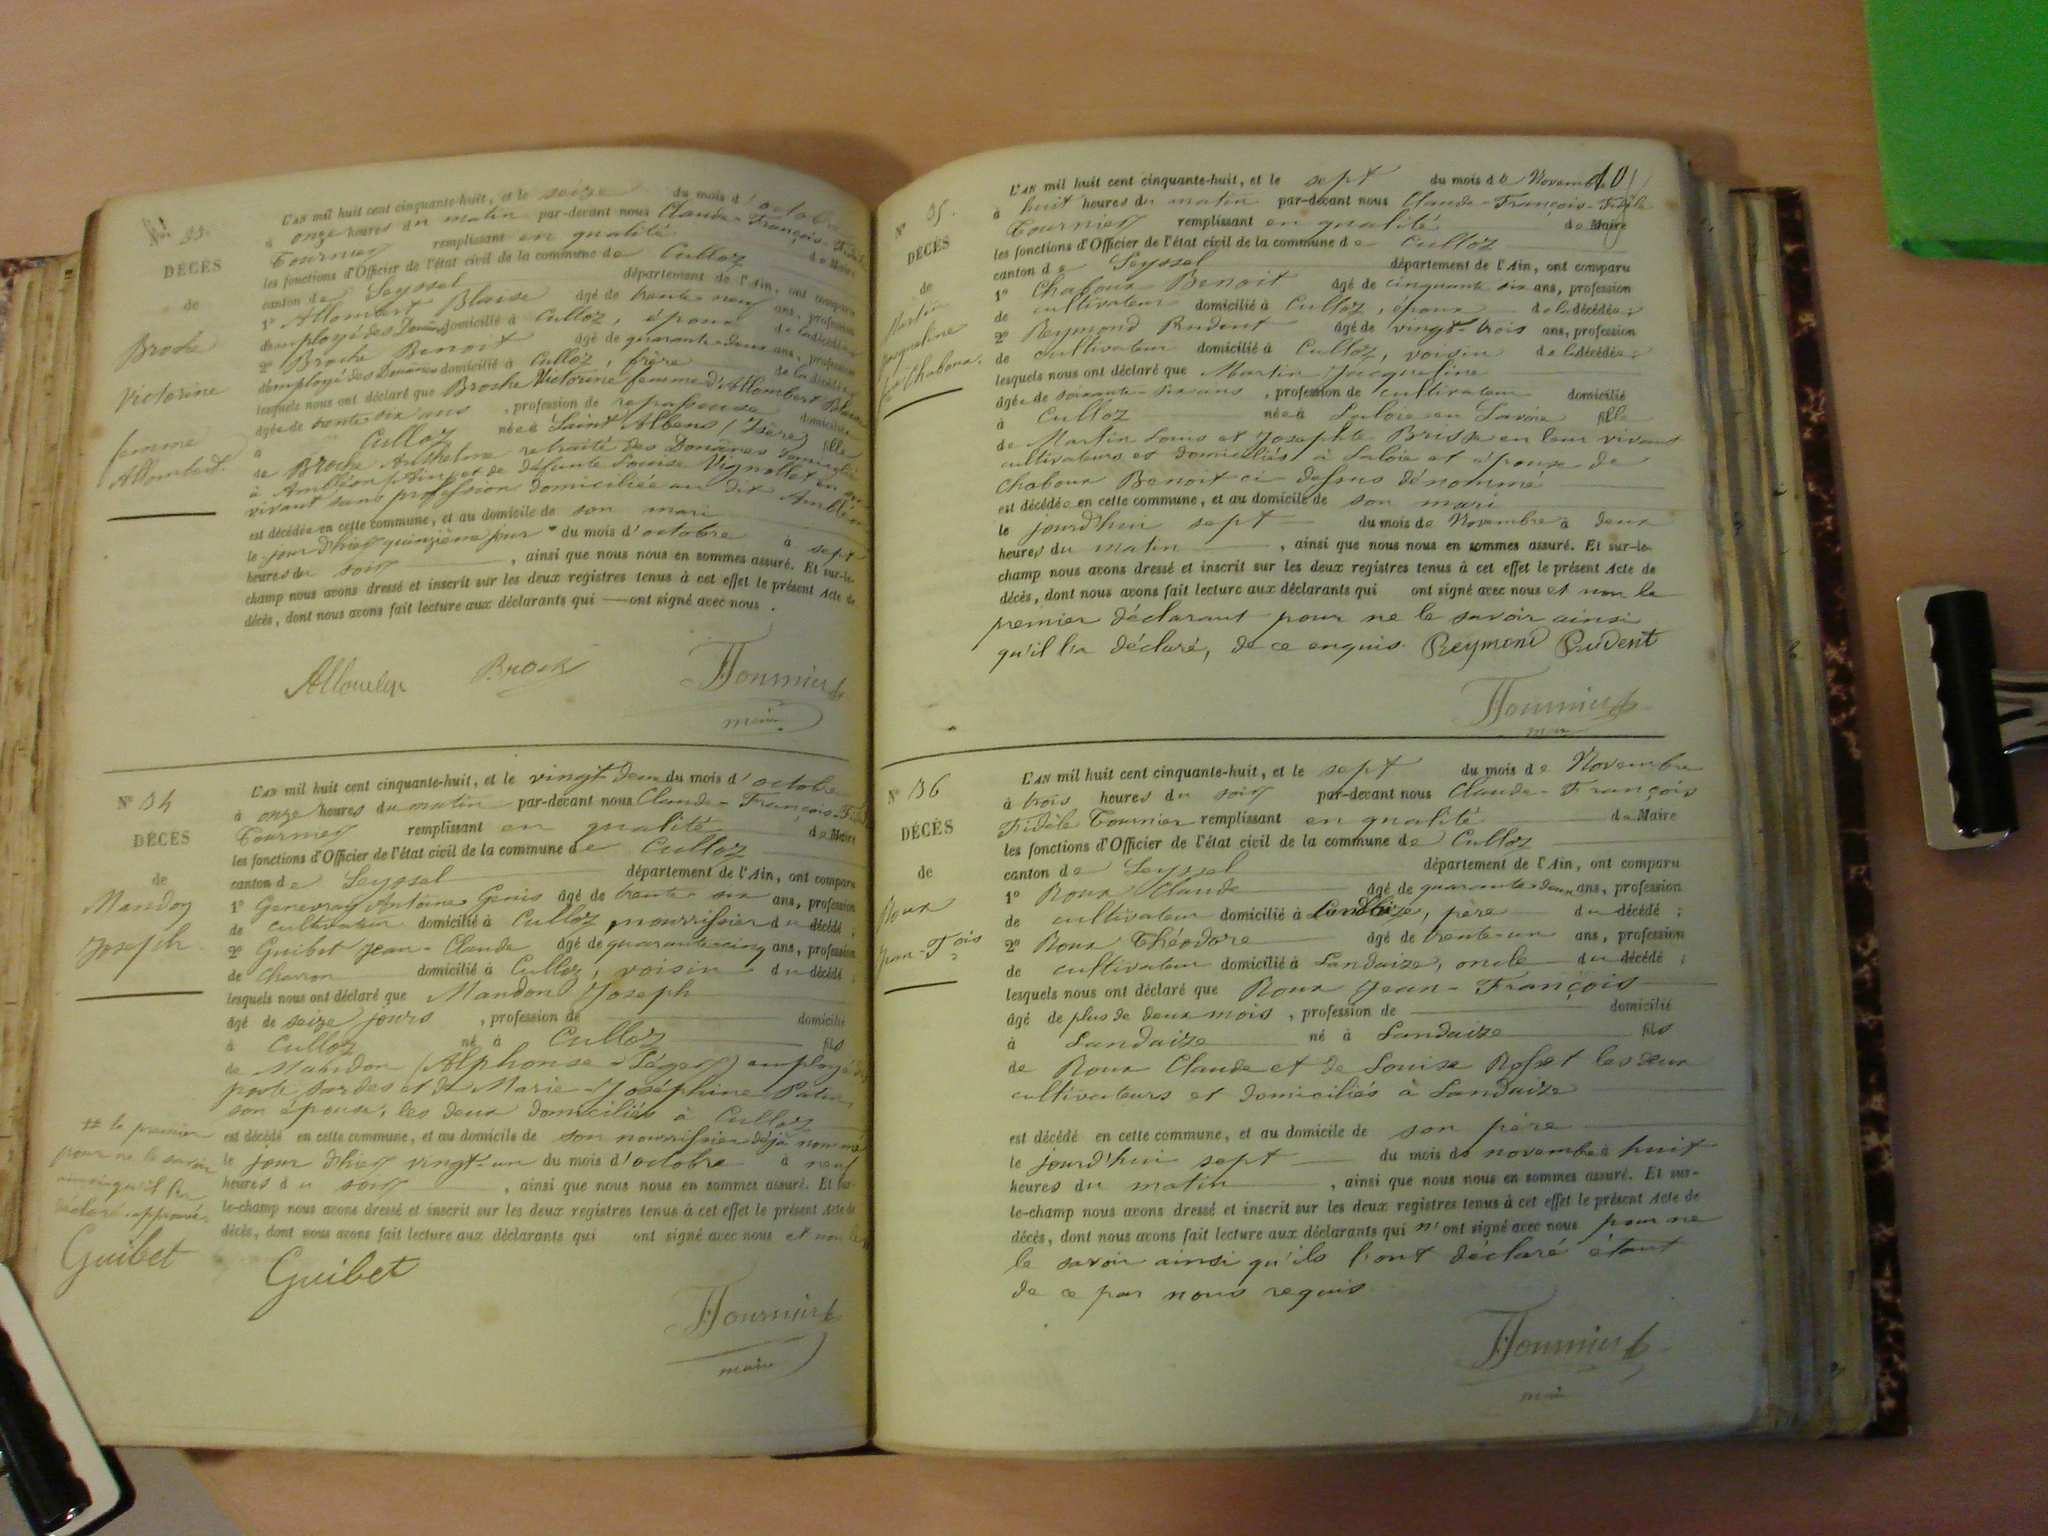 N° 33.
DÉCÈS
de
Broche
Victorine
femme
Allombert.
L'AN mil huit cent cinquante-huit, et le seize du mois d'octobre
à onze heures du matin par-devant nous Claude-François-Fidèle
Tournier remplissant en qualité de Maire
les fonctions d'Officier de l'état civil de la commune de Culloz
canton de Seyssel département de l'Ain, ont comparu
1° Allombert Blaise âgé de trente neuf ans, profession
d'employé des Douanes domicilié à Culloz, époux de la décédée
2° Broche Benoit âgé de quarante-deux ans, profession
d'employé des Douanes domicilié à Culloz, frère de la décédée
lesquels nous ont déclaré que Broche Victorine femme d'Allombert Blaise
âgée de trente six ans, profession de repasseuse domiciliée
à Culloz née à Saint Albens (Isère) fille
de Broche Anthelme retraité des Douanes domicilié
à Ambléon (Ain) et de défunte Louise Vignollet en son
vivant sans profession domiciliée au dit Ambléon
est décédée en cette commune, et au domicile de son mari
le jour d'hier quinzième jour du mois d'octobre à sept
heures du soir, ainsi que nous nous en sommes assuré. Et sur-le-
champ nous avons dressé et inscrit sur les deux registres tenus à cet effet le présent Acte de
décès, dont nous avons fait lecture aux déclarants qui ont signé avec nous.
Broch Tournier f
maire
N° 34
DÉCÈS
de
Mandon
Joseph
L'AN mil huit cent cinquante-huit, et le vingt deux du mois d'octobre
à onze heures du matin par-devant nous Claude-François-Fidèle
Tournier remplissant en qualité de Maire
les fonctions d'Officier de l'état civil de la commune de Culloz
canton de Seyssel département de l'Ain, ont comparu
1° Genevray Antoine Genis âgé de trente six ans, profession
de cultivateur domicilié à Culloz, nourrissier du décédé;
2° Guibet Jean-Claude âgé de quarante cinq ans, profession
de charron domicilié à Culloz, voisin du décédé;
lesquels nous ont déclaré que Mandon Joseph
âgé de seize jours, profession de domicilié
à Culloz né à Culloz fils
de Mandon (Alphonse-Léger) employé des
ports sardes et de Marie-Joséphine
son épouse, les deux domiciliés à Culloz
est décédé en cette commune, et au domicile de son nourrissier déjà nommé
le jour d'hier vingt-un du mois d'octobre à neuf
heures du soir, ainsi que nous nous en sommes assuré. Et sur-
le-champ nous avons dressé et inscrit sur les deux registres tenus à cet effet le présent Acte de
décès, dont nous avons fait lecture aux déclarants qui ont signé avec nous et non
le premier
pour ne le savoir
ainsi qu'il l'a
déclaré. approuvé.
Guibet
Guibet
Tournier f
maire
10
N° 35.
DÉCÈS
de
Martin
Jacqueline
fe Chaboux.
L'AN mil huit cent cinquante-huit, et le sept du mois de Novembre
à huit heures du matin par-devant nous Claude-François-Fidèle
Tournier remplissant en qualité de Maire
les fonctions d'Officier de l'état civil de la commune de Culloz
canton de Seyssel département de l'Ain, ont comparu
1° Chaboux Benoit âgé de cinquante six ans, profession
de cultivateur domicilié à Culloz, époux de la décédée;
2° Reymond Prudent âgé de vingt-trois ans, profession
de cultivateur domicilié à Culloz, voisin de la décédée;
lesquels nous ont déclaré que Martin Jacqueline
âgée de soixante-six ans, profession de cultivateur domicilié
à Culloz née à en Savoie fille
de Martin Louis et Josephte en leur vivant
cultivateurs et domiciliés à et épouse de
Chaboux Benoit ci dessus dénommé
est décédée en cette commune, et au domicile de son mari
le jourd'hui sept du mois de Novembre à deux
heures du matin, ainsi que nous nous en sommes assuré. Et sur-le-
champ nous avons dressé et inscrit sur les deux registres tenus à cet effet le présent Acte de
décès, dont nous avons fait lecture aux déclarants qui ont signé avec nous et non le
premier déclarant pour ne le savoir ainsi
qu'il l'a déclaré, de ce enquis. Reymond Prudent
Tournier f
maire
N° 36
DÉCÈS
de
Roux
Jean-Fois
L'AN mil huit cent cinquante-huit, et le sept du mois de Novembre
à trois heures du soir par-devant nous Claude-François
Fidèle Tournier remplissant en qualité de Maire
les fonctions d'Officier de l'état civil de la commune de Culloz
canton de Seyssel département de l'Ain, ont comparu
1° Roux Claude âgé de quarante-deux ans, profession
de cultivateur domicilié à Landaize, père du décédé;
2° Roux Théodore âgé de trente-un ans, profession
de cultivateur domicilié à Landaize, oncle du décédé;
lesquels nous ont déclaré que Roux Jean-François
âgé de plus de deux mois, profession de domicilié
à Landaize né à Landaize fils
de Roux Claude et de Louise Rosset les deux
cultivateurs et domiciliés à Landaize
est décédé en cette commune, et au domicile de son père
le jourd'hui sept du mois de novembre à huit
heures du matin, ainsi que nous nous en sommes assuré. Et sur-
le-champ nous avons dressé et inscrit sur les deux registres tenus à cet effet le présent Acte de
décès, dont nous avons fait lecture aux déclarants qui n'ont signé avec nous pour ne
le savoir ainsi qu'ils l'ont déclaré étant
de ce par nous requis
Tournier f
maire